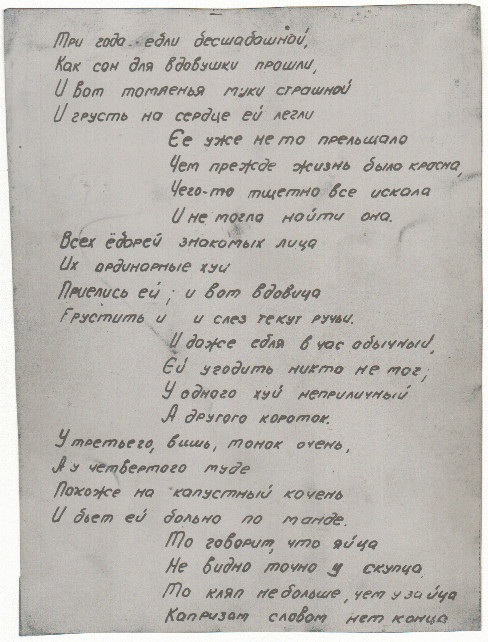 Три года ебли бесшабашной,
Как сон для вдовушки прошли,
И вот томленья муки страшной
И грусть на сердце ей легли
Ее уже не то прельщало
Чем прежде жизнь была красна,
Чего-то тщетно все искала
И не могла найти она.
Всех ёбарей знакомых лица
Их ординарные хуи
Приелись ей; и вот вдовица
Грустить и и слез текут ручьи.
И даже ебля в час обычный,
Ей угодить никто не мог;
У одного хуй неприличный
А другого короток.
У третьего, вишь, тонок очень,
А у четвертого муде
Похоже на капустный кочень
И бьет ей больно по манде.
То говорит, что яйца
Не видно точно у скупца
То кляп не больше, чем у зайца
Капризам словом нет конца